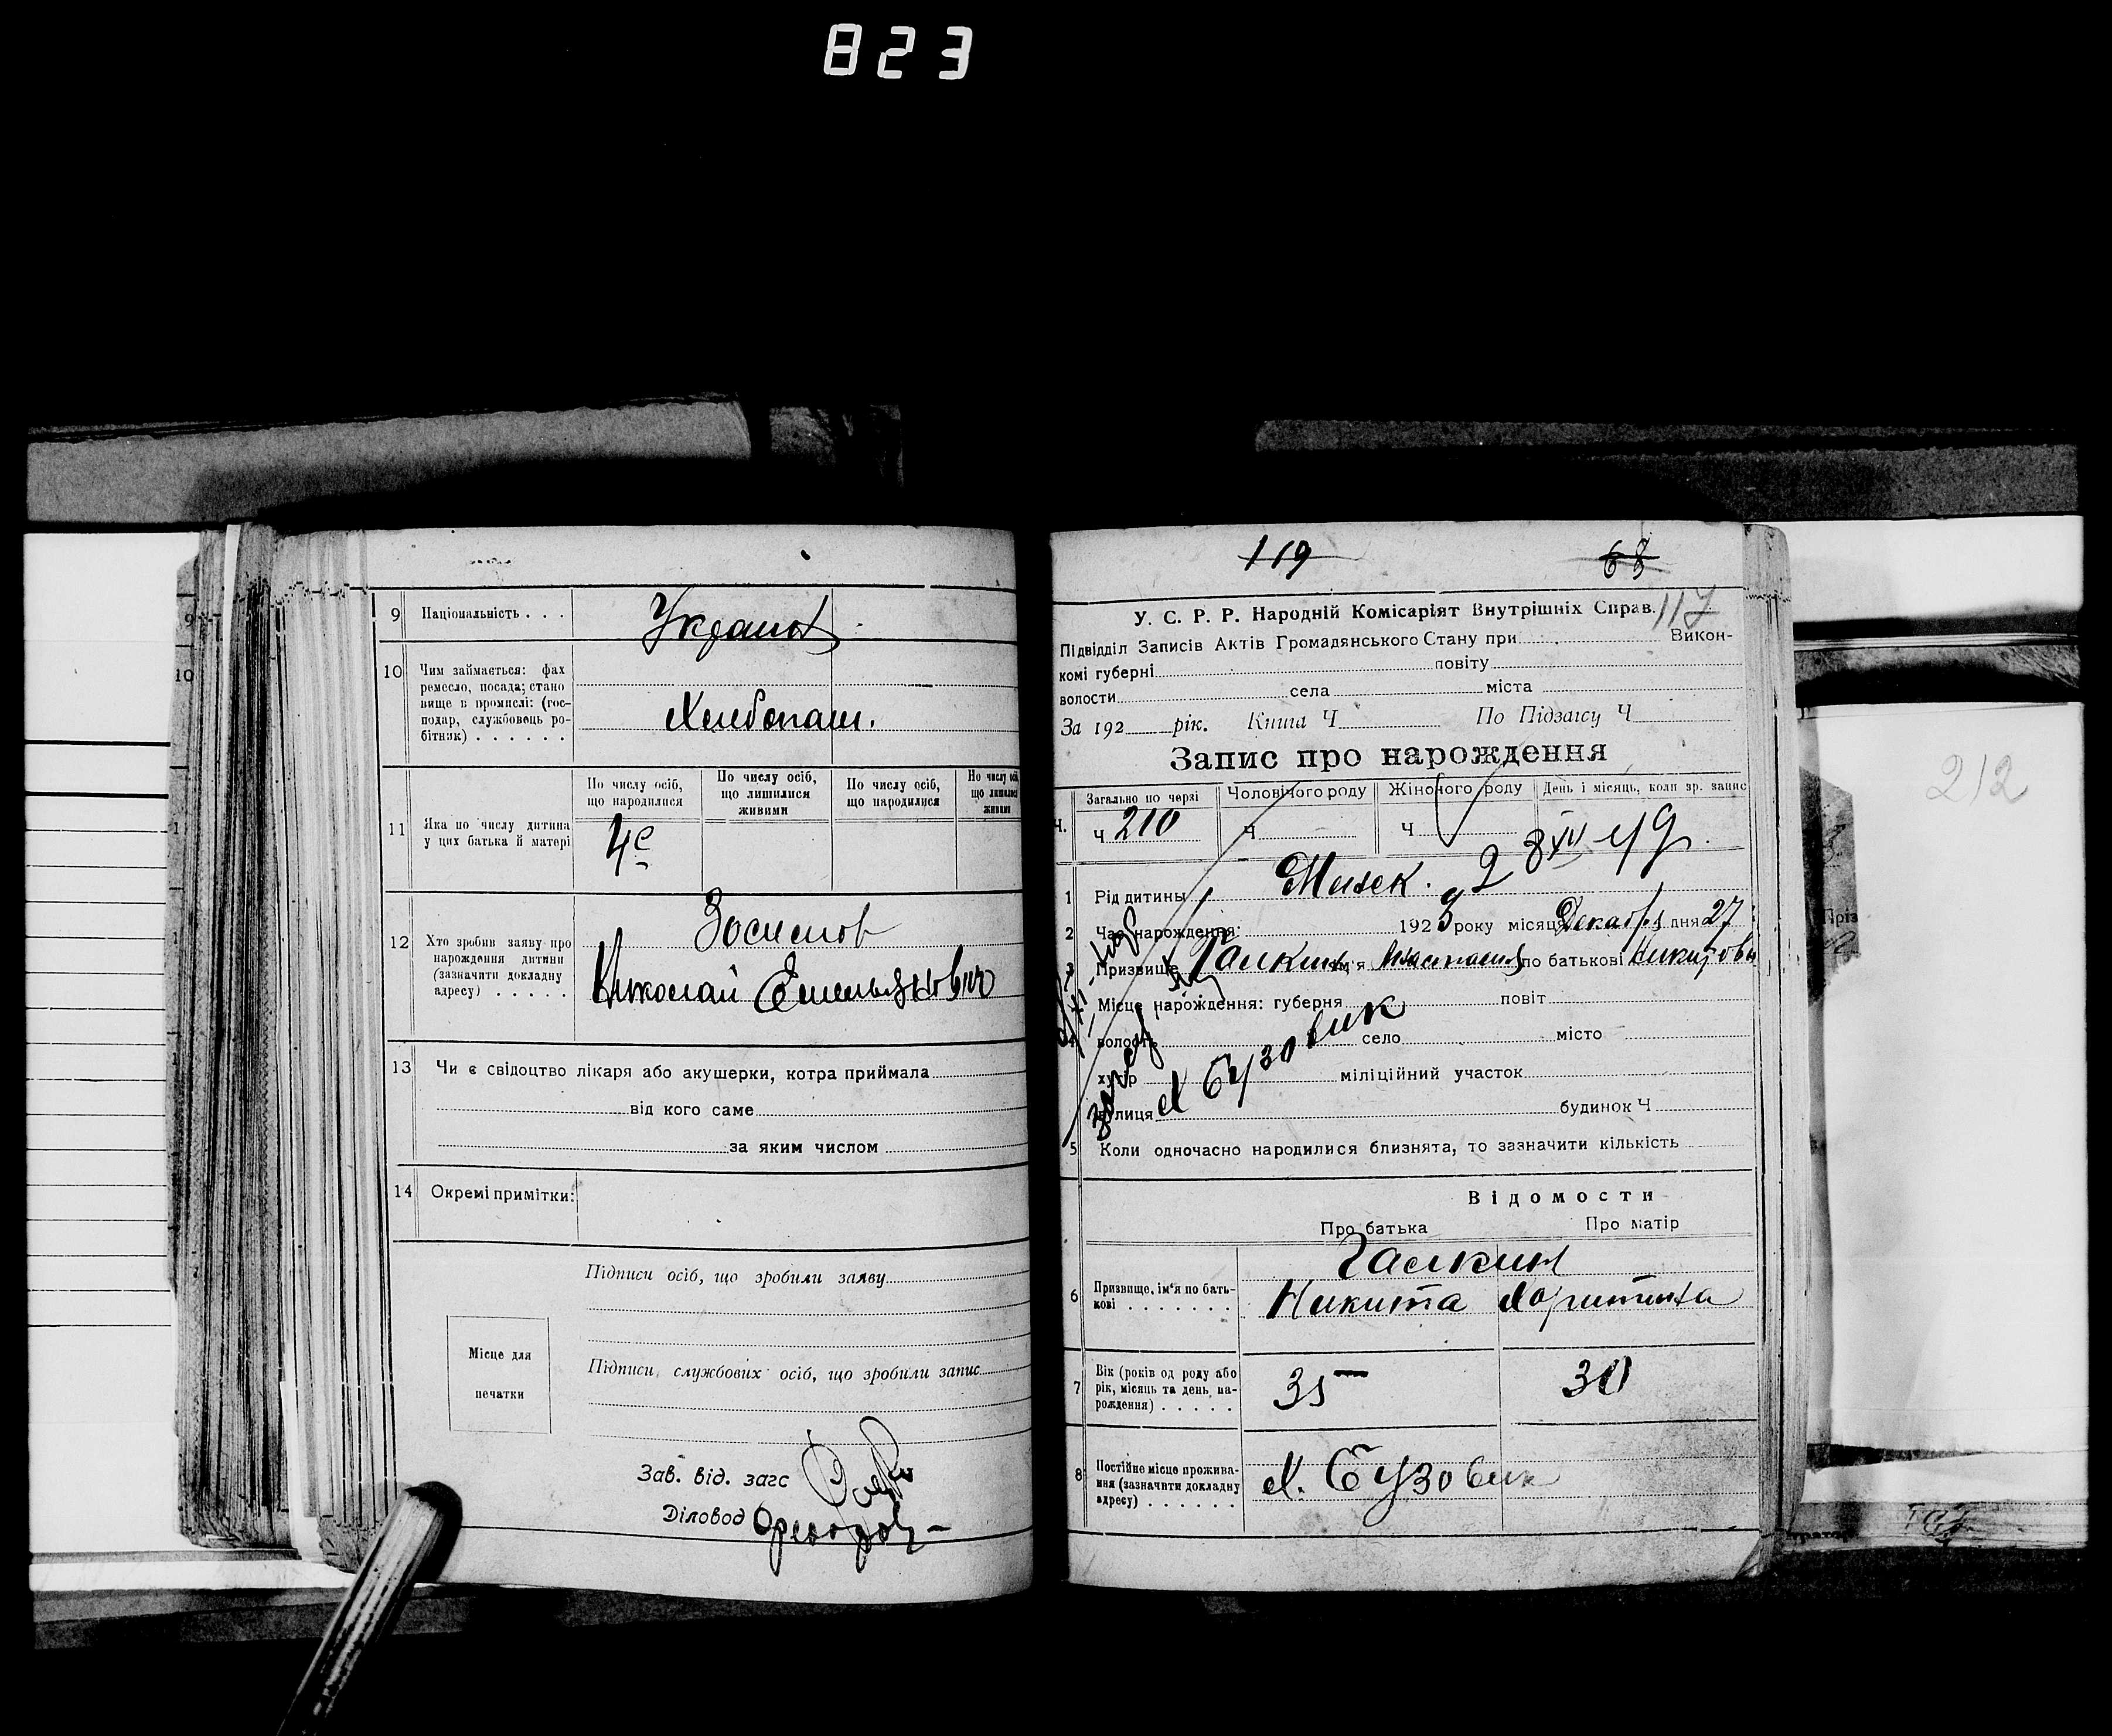 823
9 Національність . . .
Украин
10 Чим займається: фах
ремесло, посада; стано
вище в промислі: (гос-
подар, службовець ро-
бітник) . . . . . .
Хлебопаш.
По числу осіб, що народилися
По числу осіб, що лишилися живими
По числу осіб, що народилися
По числу осіб, що лишилися живими
11 Яка по числу дитина
у цих батька й матері
4е
12 Хто зробив заяву про
нарождення дитини
(зазначити докладну
адресу) . . . . .
Зосимов
Николай Емельянович
13 Чи є свідоцтво лікаря або акушерки, котра приймала
від кого саме
за яким числом
14 Окремі примітки:
Підписи осіб, що зробили заяву
Місце для
печатки
Підписи службових осіб, що зробили запис
Зав. від. загс
Діловод
119 68
У. С. Р. Р. Народній Комісаріят Внутрішніх Справ. 117
Підвідділ Записів Актів Громадянського Стану при Викон-
комі губерні повіту
волости села міста
За 192 рік. Книга Ч По Підзагсу Ч
Запис про нарождення
Ч. Загально по черзі Чоловічого роду Жіночого роду День і місяць, коли зр. запис
Ч 210 Ч Ч
1 Рід дитины Женск.
2 Час нарождення: 1923 року місяця Декабря дня 27
3 Призвище Галкина ім'я Анастасия по батькові Никитовн
Місце нарождення: губерня повіт
4 волость село місто
хутір міліційний участок
вулиця х Бузовик будинок Ч
5 Коли одночасно народилися близнята, то зазначити кількість
Відомости
Про батька Про матір
Галкин
6 Призвище, ім'я по бать-
кові . . . . . . .
Никита Хористина
7 Вік (років од роду або
рік, місяць та день на-
рождення) . . . . .
35 30
8 Постійне місце прожива-
ння (зазначити докладну
адресу) . . . . . .
х. Бузовик
212